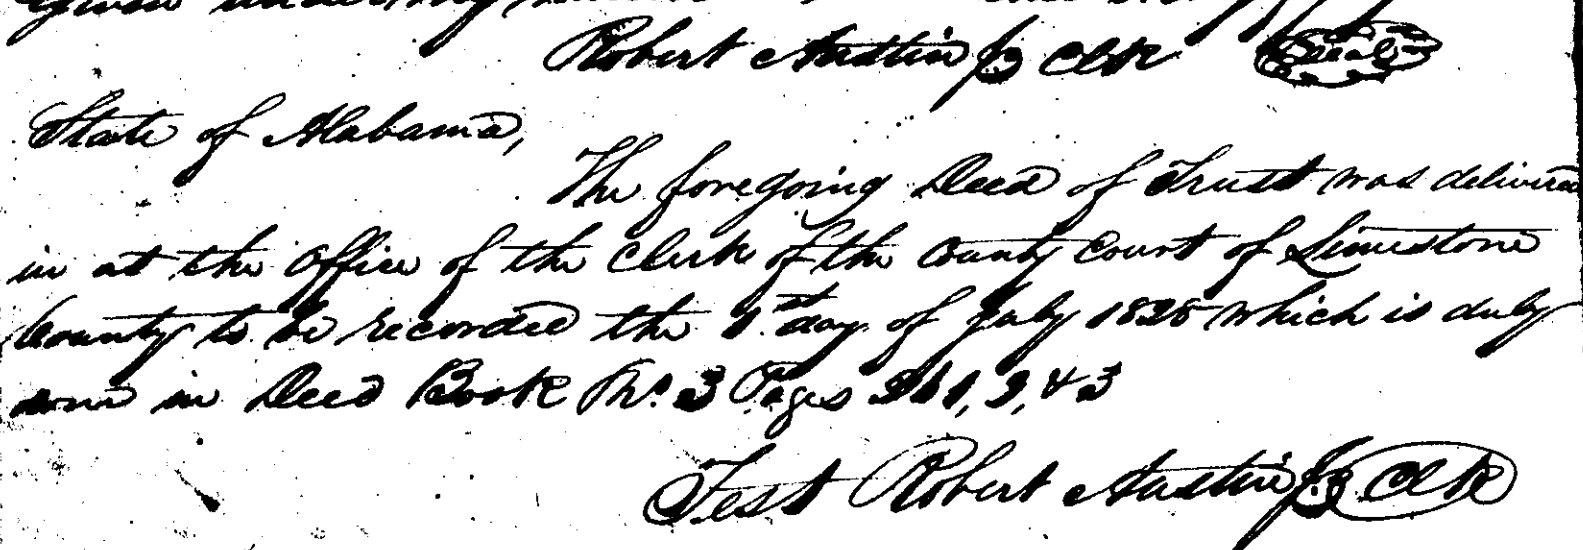 Given under my
Robert Austin Jr Clk Seal
State of Alabama,
The foregoing Deed of Trust was delivered
in at the Office of the Clerk of the County Court of Limestone
County to be recorded the 1st day of July 1828 which is duly
done in Deed Book No. 3 Pages 261, 2, & 3
Test Robert Austin Jr Clk